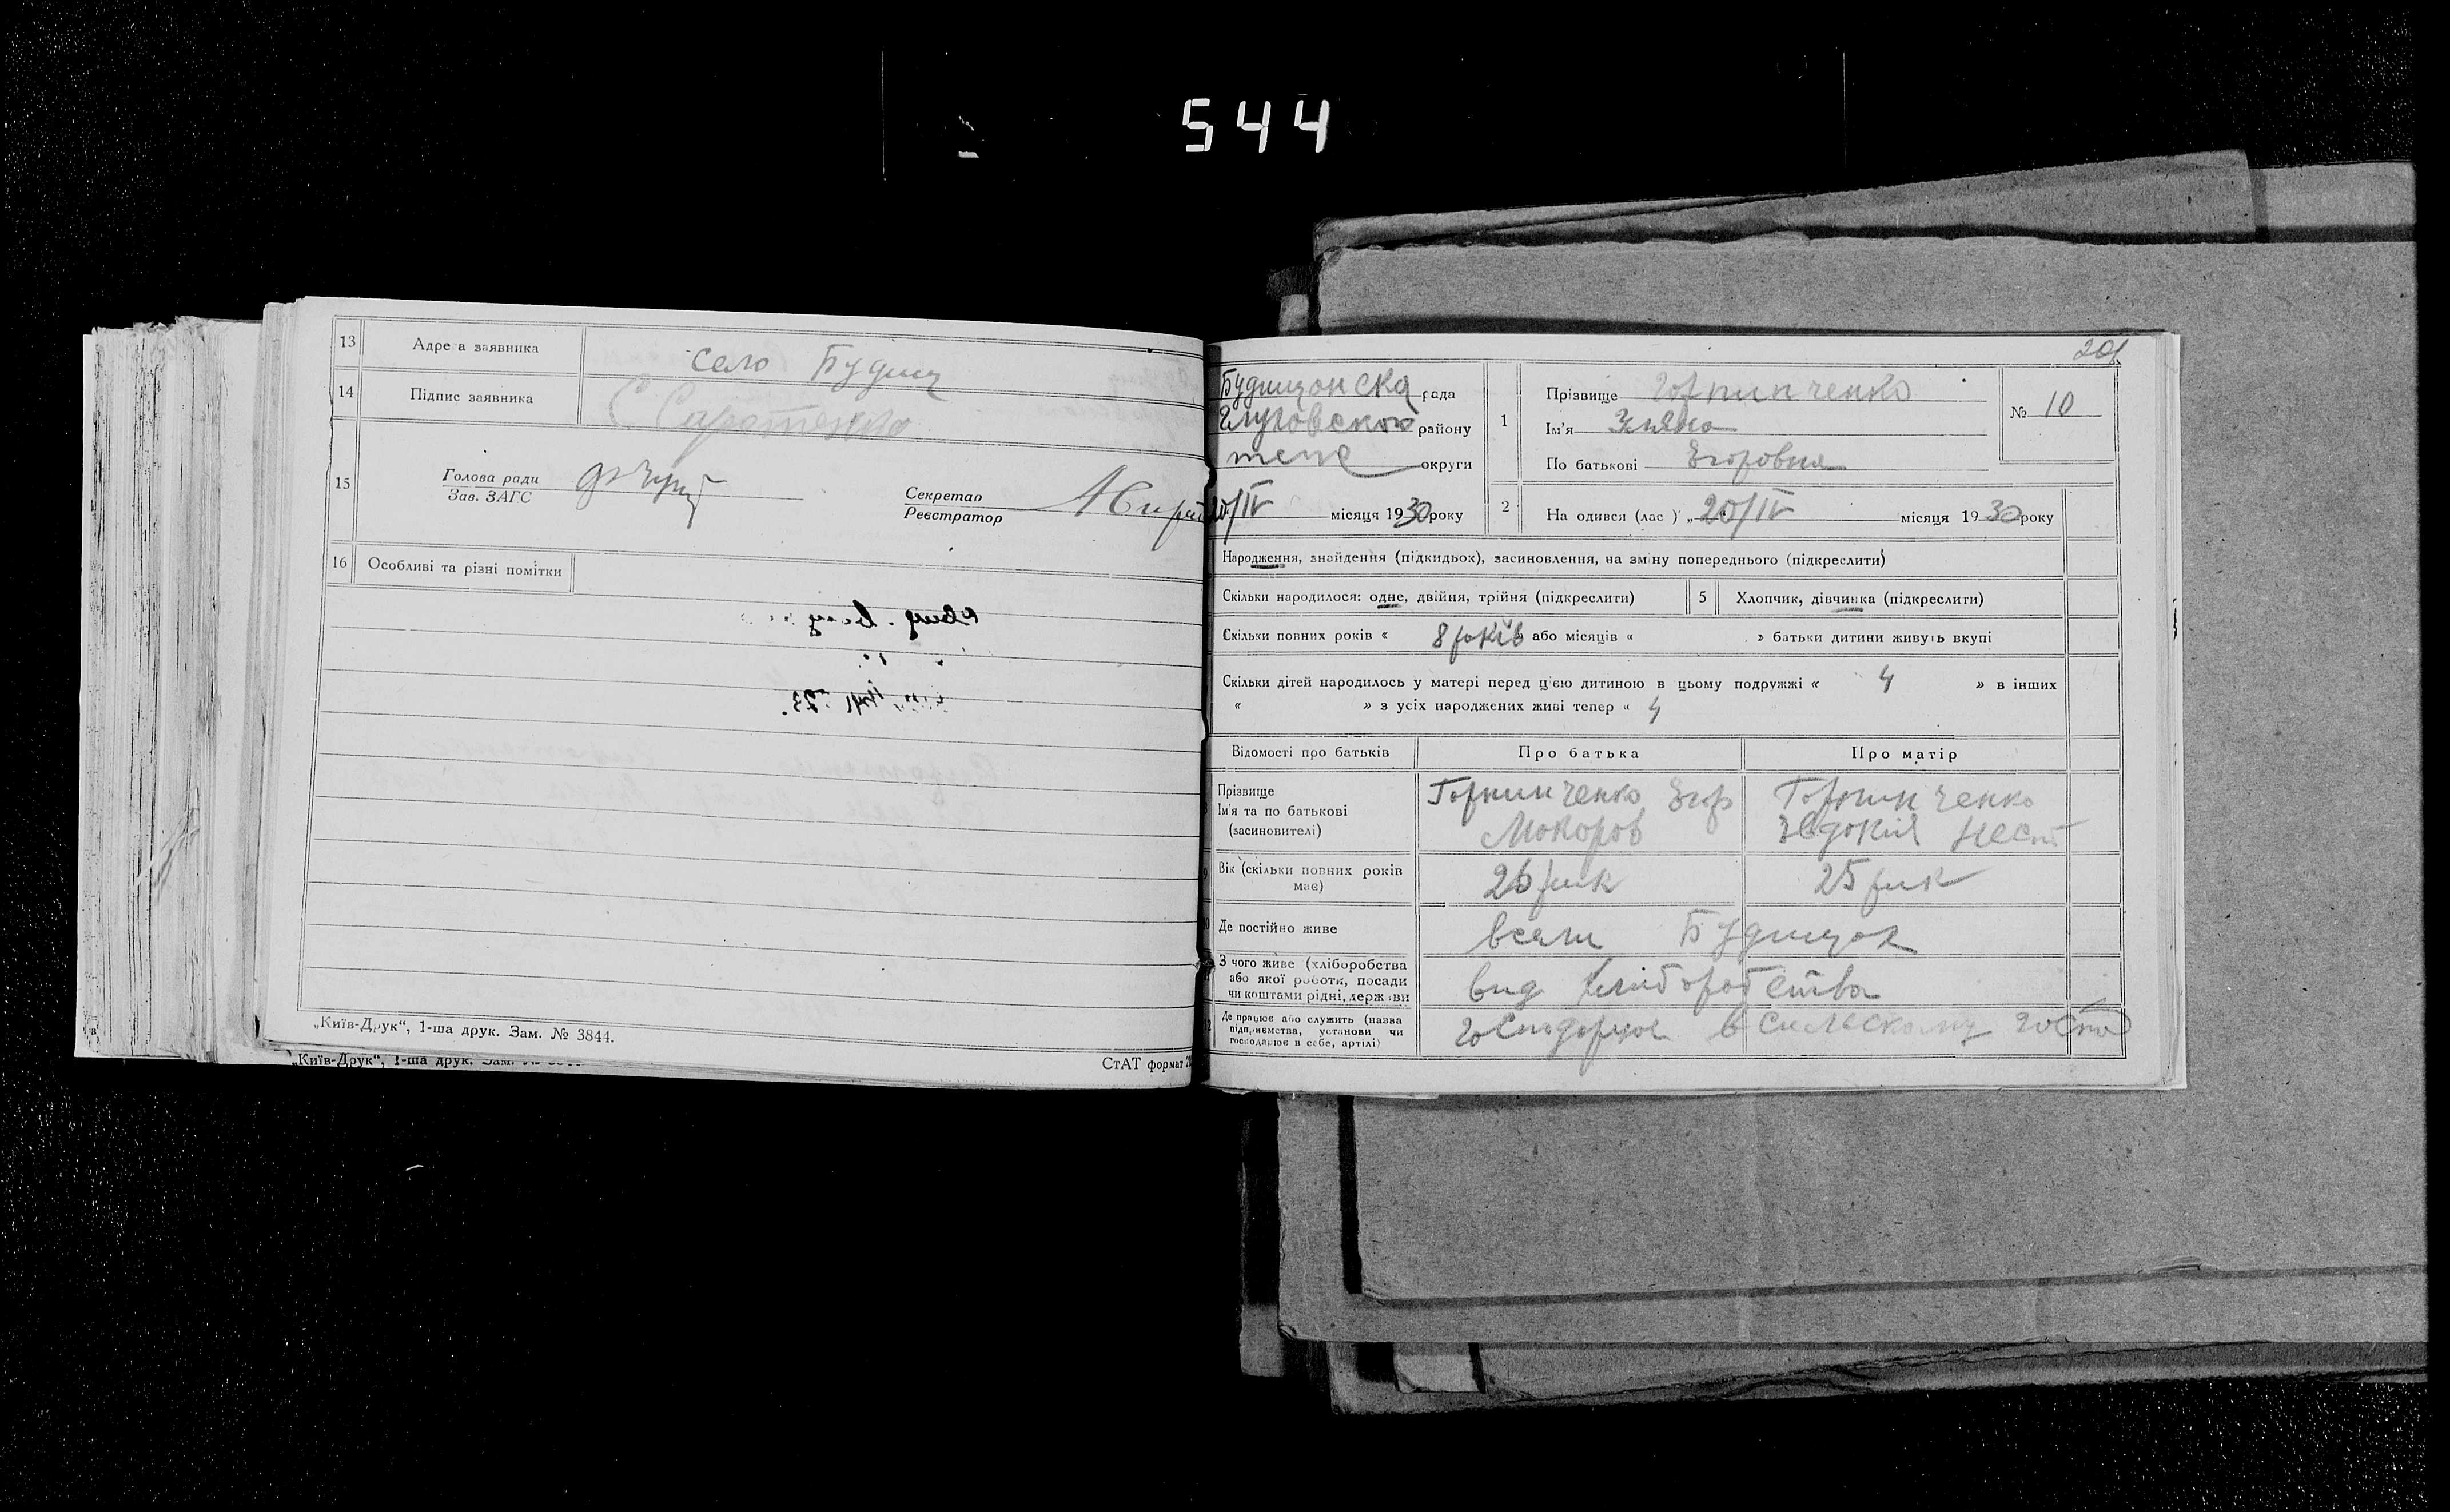 544
13 Адреа заявника село Будищ
14 Підпис заявника С Сиротенко
15 Голова ради
Зав. ЗАГС
Секретар
Реєстратор
16 Особливі та різні помітки
„Київ-Друк“, 1-ша друк. Зам. № 3844.
„Київ-Друк“, 1-ша друк.
СтАТ формат
201
Будищонска рада
Глуховского району
округи
20/IV місяця 1930 року
1 Прізвище Горпинченко
Ім'я
По батькові Егоровна
№ 10
2 На одився (лас ) „ 20/IV місяця 1930 року
Народження, знайдення (підкидьок), засиновлення, на зміну попереднього (підкреслити)
Скільки народилося: одне, двійня, трійня (підкреслити) 5 Хлопчик, дівчинка (підкреслити)
Скільки повних років « 8 років або місяців « » батьки дитини живуть вкупі
Скільки дітей народилось у матері перед цією дитиною в цьому подружжі « 4 » в інших
« » з усіх народжених живі тепер « 4
Відомості про батьків Про батька Про матір
Прізвище
Ім'я та по батькові
(засиновителі)
Горпинченко Егор
Мокоров
Горпинченко
Євдокия Нест
Вік (скільки повних років
має)
26 рик 25 рик
Де постійно живе всели Будищок
З чого живе (хліборобства
або якої роботи, посади
чи коштами рідні, держави
вид хлиборобства
Де працює або служить (назва
підприємства, установи чи
господарює в себе, артілі)
господарюе в сильскому госпо